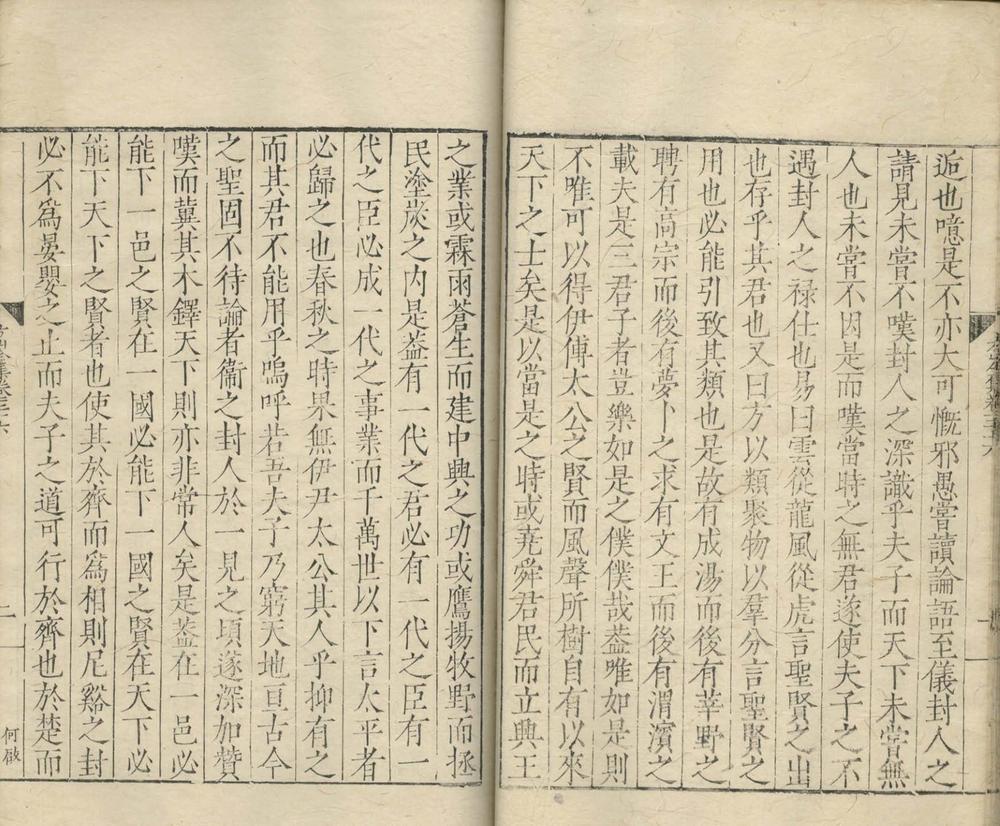 逅也噫是不亦大可慨邪愚嘗讀論語至儀封人之
請見未嘗不嘆封人之深識乎夫子而天下未嘗無
人也未嘗不因是而嘆當時之無君遂使夫子之不
遇封人之祿仕也易曰雲從龍風從虎言聖賢之出
也存乎其君也又曰方以類聚物以羣分言聖賢之
用也必能引致其類也是故有成湯而後有莘野之
聘有高宗而後有夢卜之求有文王而後有渭濱之
載夫是三君子者豈樂如是之僕僕哉葢唯如是則
不唯可以得伊傅太公之賢而風聲所樹自有以來
天下之士矣是以當是之時或堯舜君民而立興王
之業或霖雨蒼生而建中興之功或鷹揚牧野而拯
民塗炭之内是葢有一代之君必有一代之臣有一
代之臣必成一代之事業而千萬世以下言太平者
必歸之也春秋之時果無伊尹太公其人乎抑有之
而其君不能用乎嗚呼若吾夫子乃窮天地亘古今
之聖固不待論者衞之封人於一見之頃遂深加贊
嘆而冀其木鐸天下則亦非常人矣是葢在一邑必
能下一邑之賢在一國必能下一國之賢在天下必
能下天下之賢者也使其於齊而爲相則尼谿之封
必不爲晏嬰之止而夫子之道可行於齊也於楚而
二
何啟